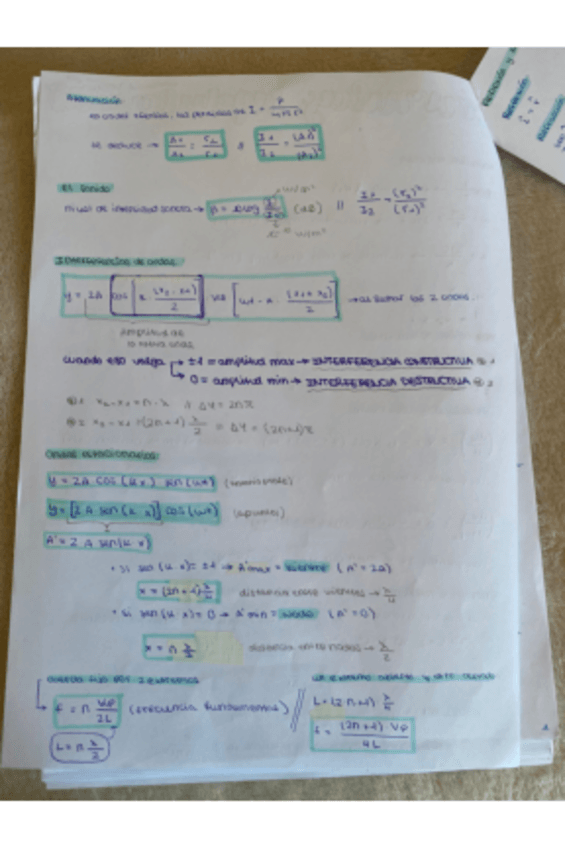 Atenuación
en ondas esféricas, las I = P / 4πr²
se deduce → A₁/A₂ = r₂/r₁ // I₁/I₂ = (A₁)²/(A₂)²
El sonido
nivel de intensidad sonora → β = 10 log I/I₀ (dB) // I₁/I₂ = (r₂)²/(r₁)²
10⁻¹² W/m²
Interferencias de ondas
y = 2A cos [k · (x₂ - x₁)/2] [wt - k · (x₁ + x₂)/2] → al sumar las 2 ondas.
amplitud de
la nueva onda
cuando esto valga → ±1 = amplitud max → INTERFERENCIA CONSTRUCTIVA
→ 0 = amplitud min → INTERFERENCIA DESTRUCTIVA
x₂ - x₁ = n · λ ΔΨ = 2nπ
x₂ - x₁ = (2n+1) λ/2 = ΔΨ = (2n+1)π
Ondas estacionarias:
y = 2A cos (k x) sen (wt)
y = [2 A sen (k x)] cos (wt) (apuntes)
A' = 2 A sen (k x)
• si sen (k · x) = ±1 → A' max = vientre (A' = 2A)
x = (2n + 1) λ/4 distancia entre vientres →
• si sen (k · x) = 0 → A' min = nodo (A' = 0)
x = n λ/2 distancia entre nodos → λ/2
cuerda fija por 2 extremos
f = n Vφ/2L (frecuencia fundamental)
L = n λ/2
un extremo abierto y otro cerrado
L = (2n+1) λ/4
f = (2n+1) · Vφ / 4L